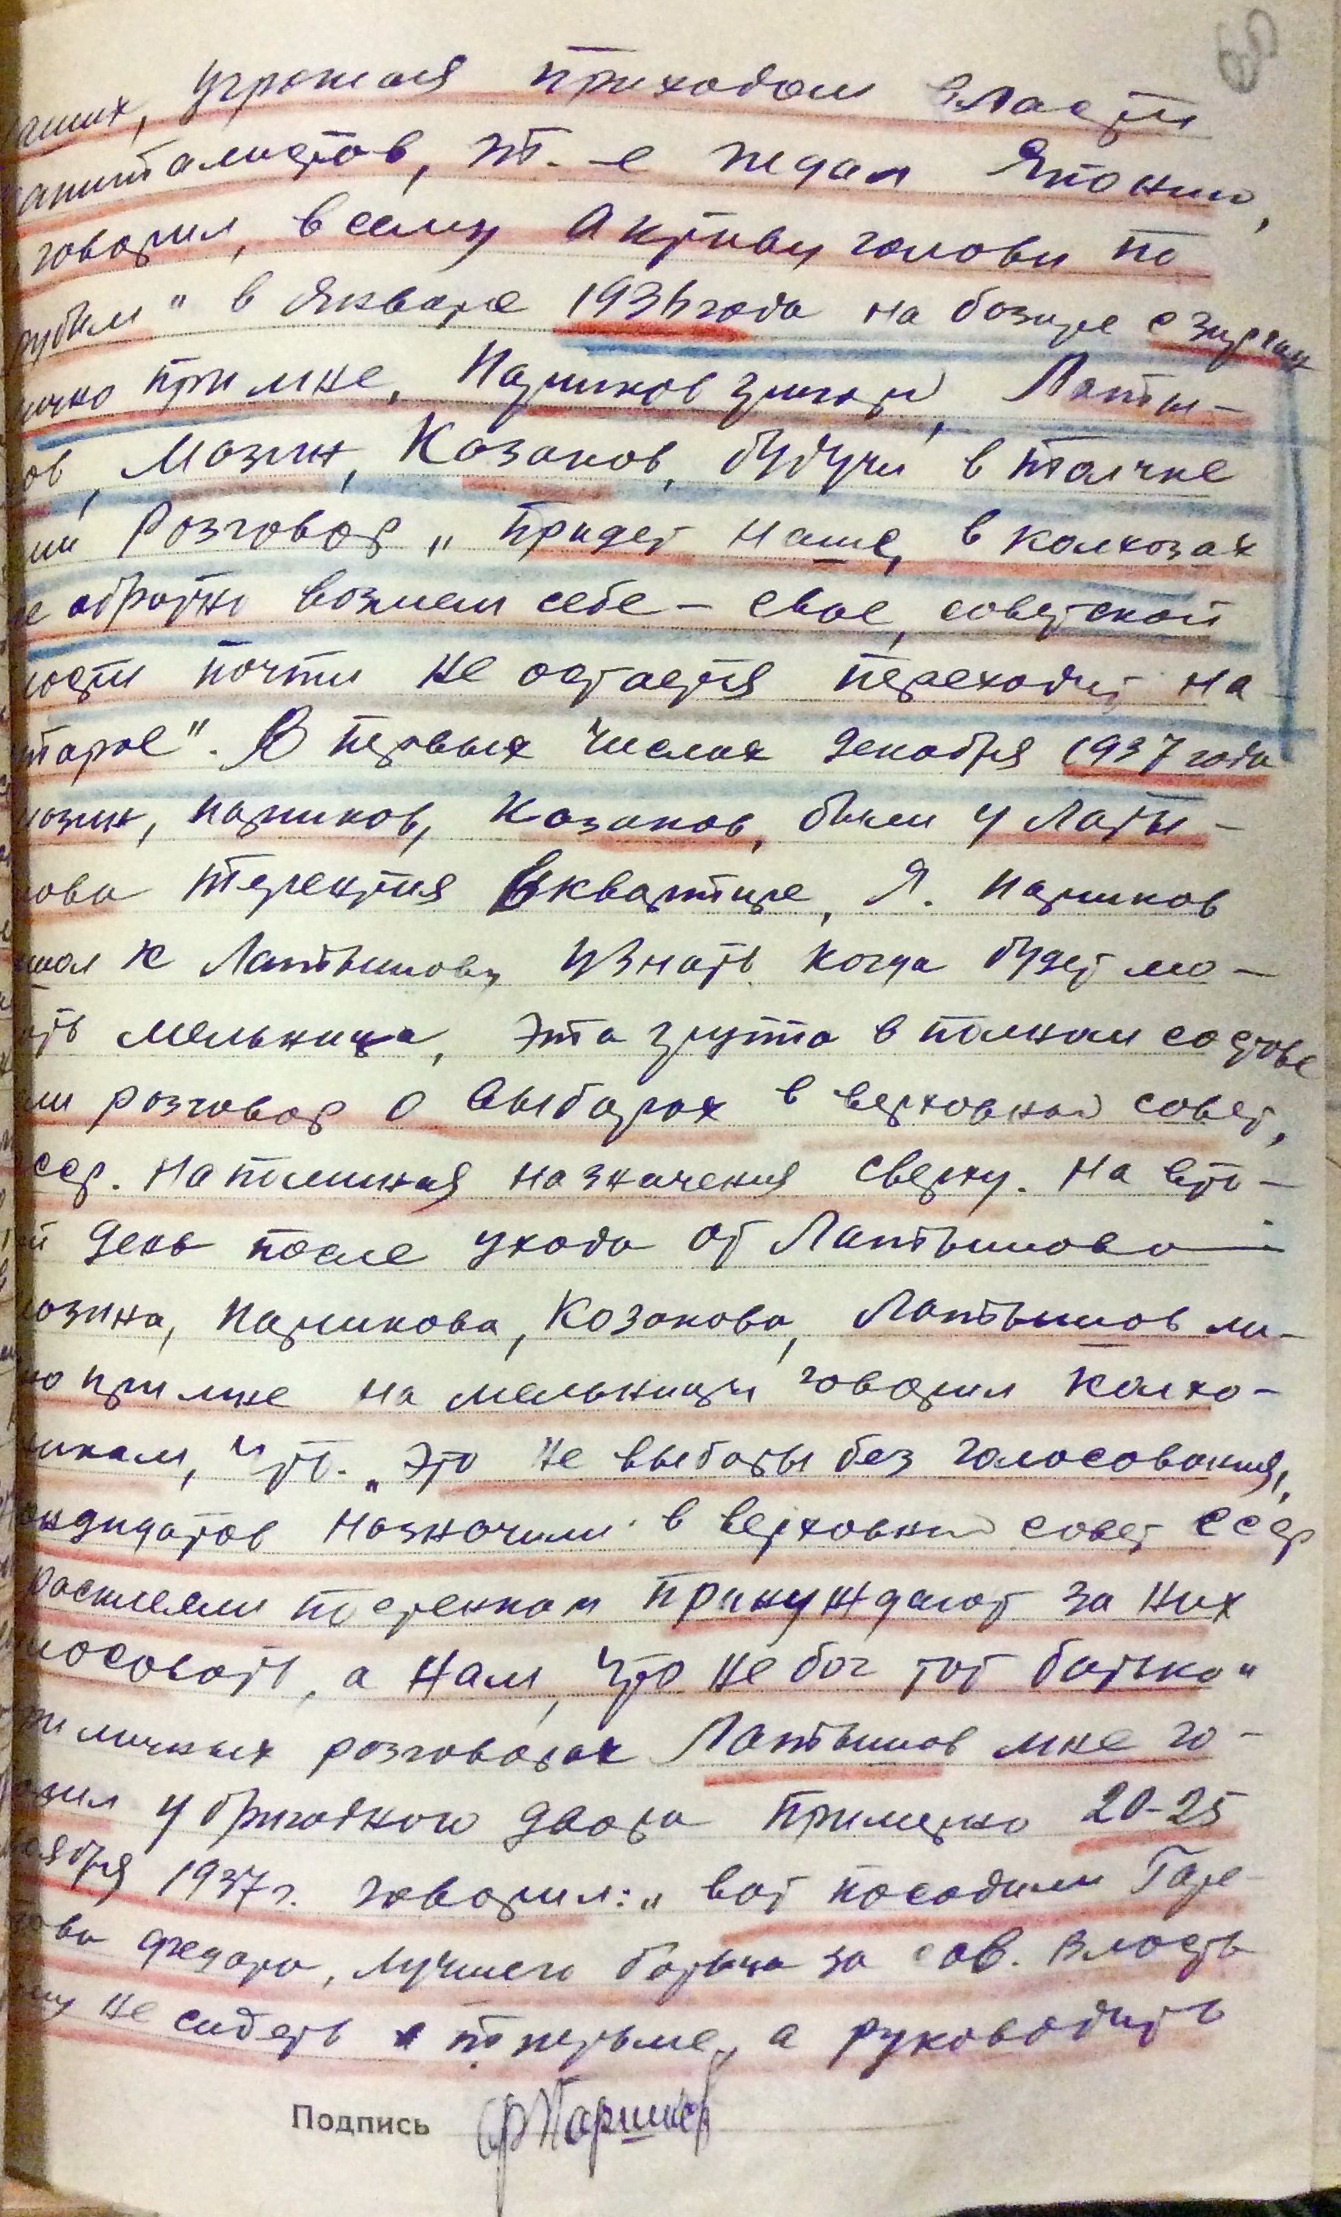 69
угрожая приходом власти
капиталистов, т.-е ждал Японию,
говорил, всему активу головы по
рубим" в январе 1936 года на базаре
лично при мне, Паршков Григорий, Латы-
ов, Мозин, Козаков, будучи в толчке
ли розговор „придет наше, в колхозах
се обратно возмем себе - свае, советской
ности почти не остается переходит на
старое". В первых числах декабря 1937 года
мозин, паршков, Козаков, были у Лапты-
нова Терентия в квартире, Я. паршков
шол к Лаптышову узнать когда будет мо-
ать мельница, эта група в полном составе
ли розговор о выборах в верховной совет,
сср. напоминая назначения сверху. На вто-
й день после ухода от Лаптышова
мозина, паршкова, Козакова, Лаптышов ли-
но при мне на мельнице говорил колхо-
никам, что. „это не выборы без голосования,
кандидатов назначили в верховный совет ссср
росклеели по стенкам принуждают за них
лосовать, а нам, что не бог тот батько"
ри личных розговорах Лаптышов мне го-
орил у бригадного двора примерно 20-25
оября 1937 г. говорил: „вот посадили Горе-
ова федора, лучшего борьца за сов. власть
му не сидеть по тюрьме, а руководить
Подпись